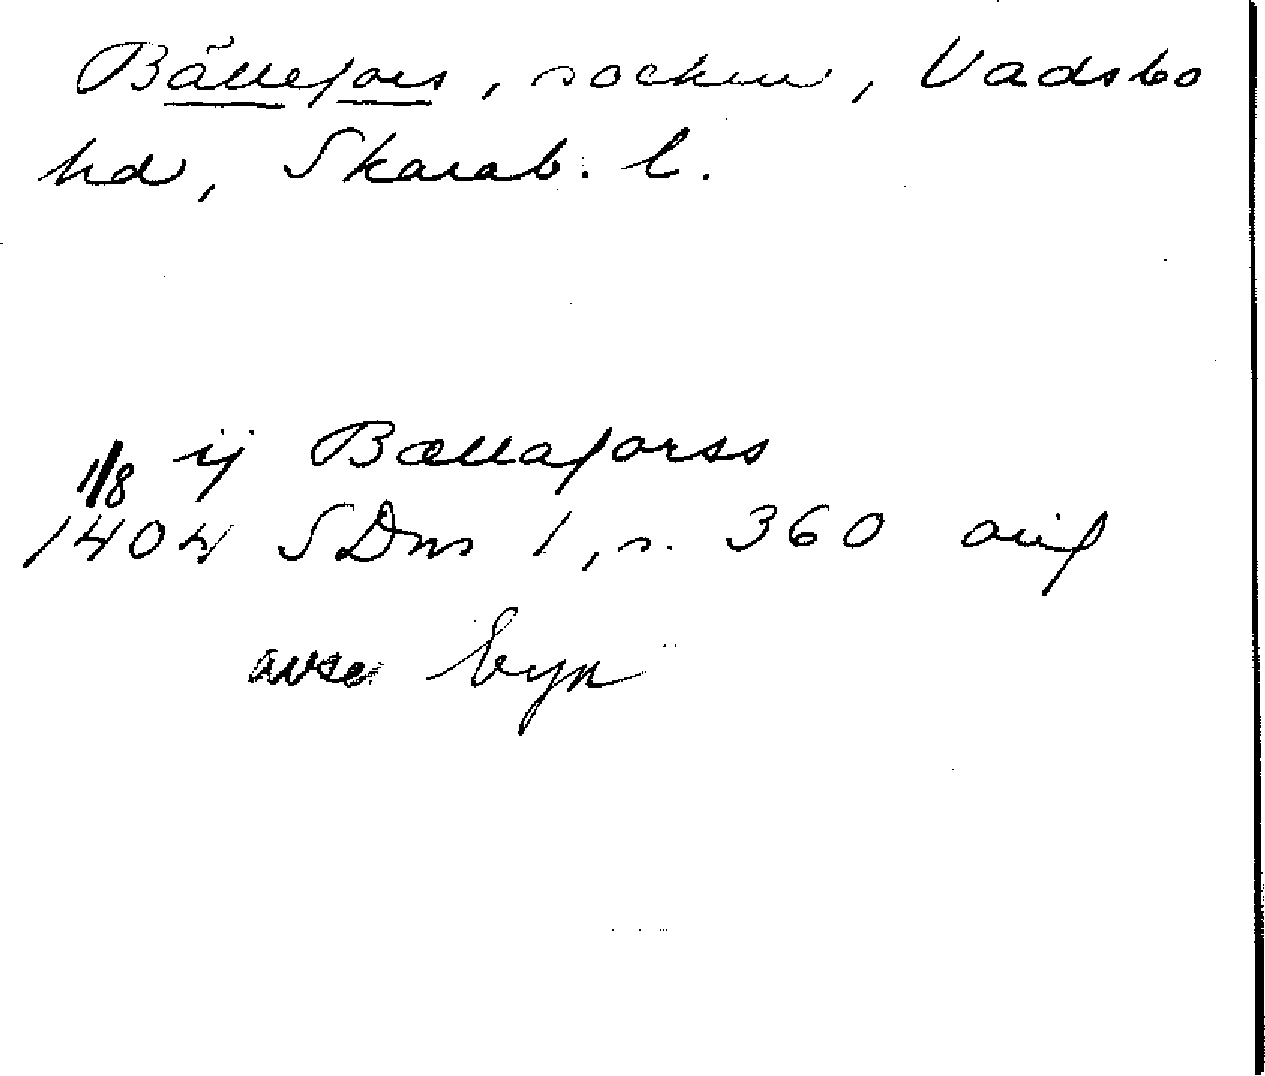 Bällefors, socken, Vadsbo
hd, Skarab. l.
ij Bællaforss
1/8
1404 SDns 1, s. 360 orig
avser byn